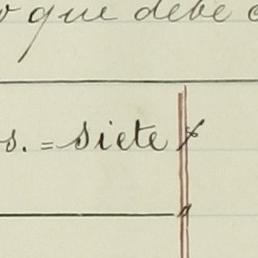 que debe
s. = siete